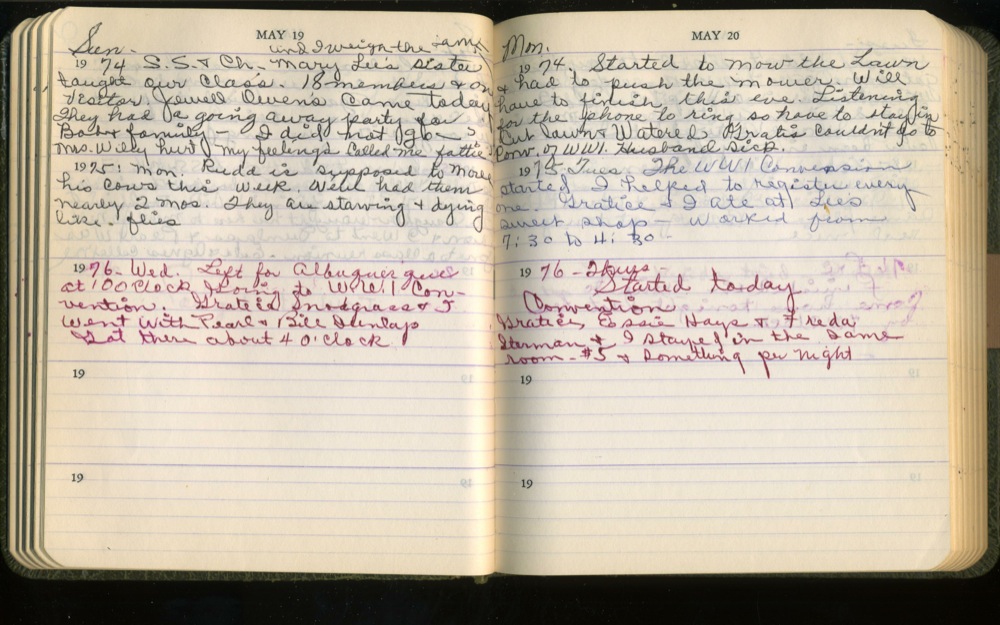 MAY 19
Sun.
and I weigh the same
1974 S.S. & Ch. Mary Lee's sister
taught our class. 18 members & one
visitor. Jewell Owens came today
They had a going away party for
Bob & family - I did not go -
Mrs. Wiley hurt my feelings called me fattie
1975: Mon. Rudd is supposed to move
his cows this week. Well had them
nearly 2 mos. They are starving & dying
live. flies
1976- Wed. Left for Albuquerque
at 1:00 Clock. Going to W.W.1 Con-
vention. Gratice Snodgrass & I
went with Pearl & Bill Dunlap
Got there about 4 O'clock
19
19
MAY 20
Mon.
1974. Started to mow the Lawn
& had to push the mower. Will
have to finish this eve. Listening
for the phone to ring so have to stay in
Cut lawn & Watered. Gratis couldn't go to
Conv. of WW1. Husband sick.
1975-Tues. The WW1 Convension
started I helped to register every
one. Gratice & I ate at Lees
sweet shop - Worked from
7:30 to 4:30
1976 - Thurs
Started today
Convention
Gratice, Essie Hays & Freda
Sterman & I stayed in the same
room - #5 & something per night
19
19